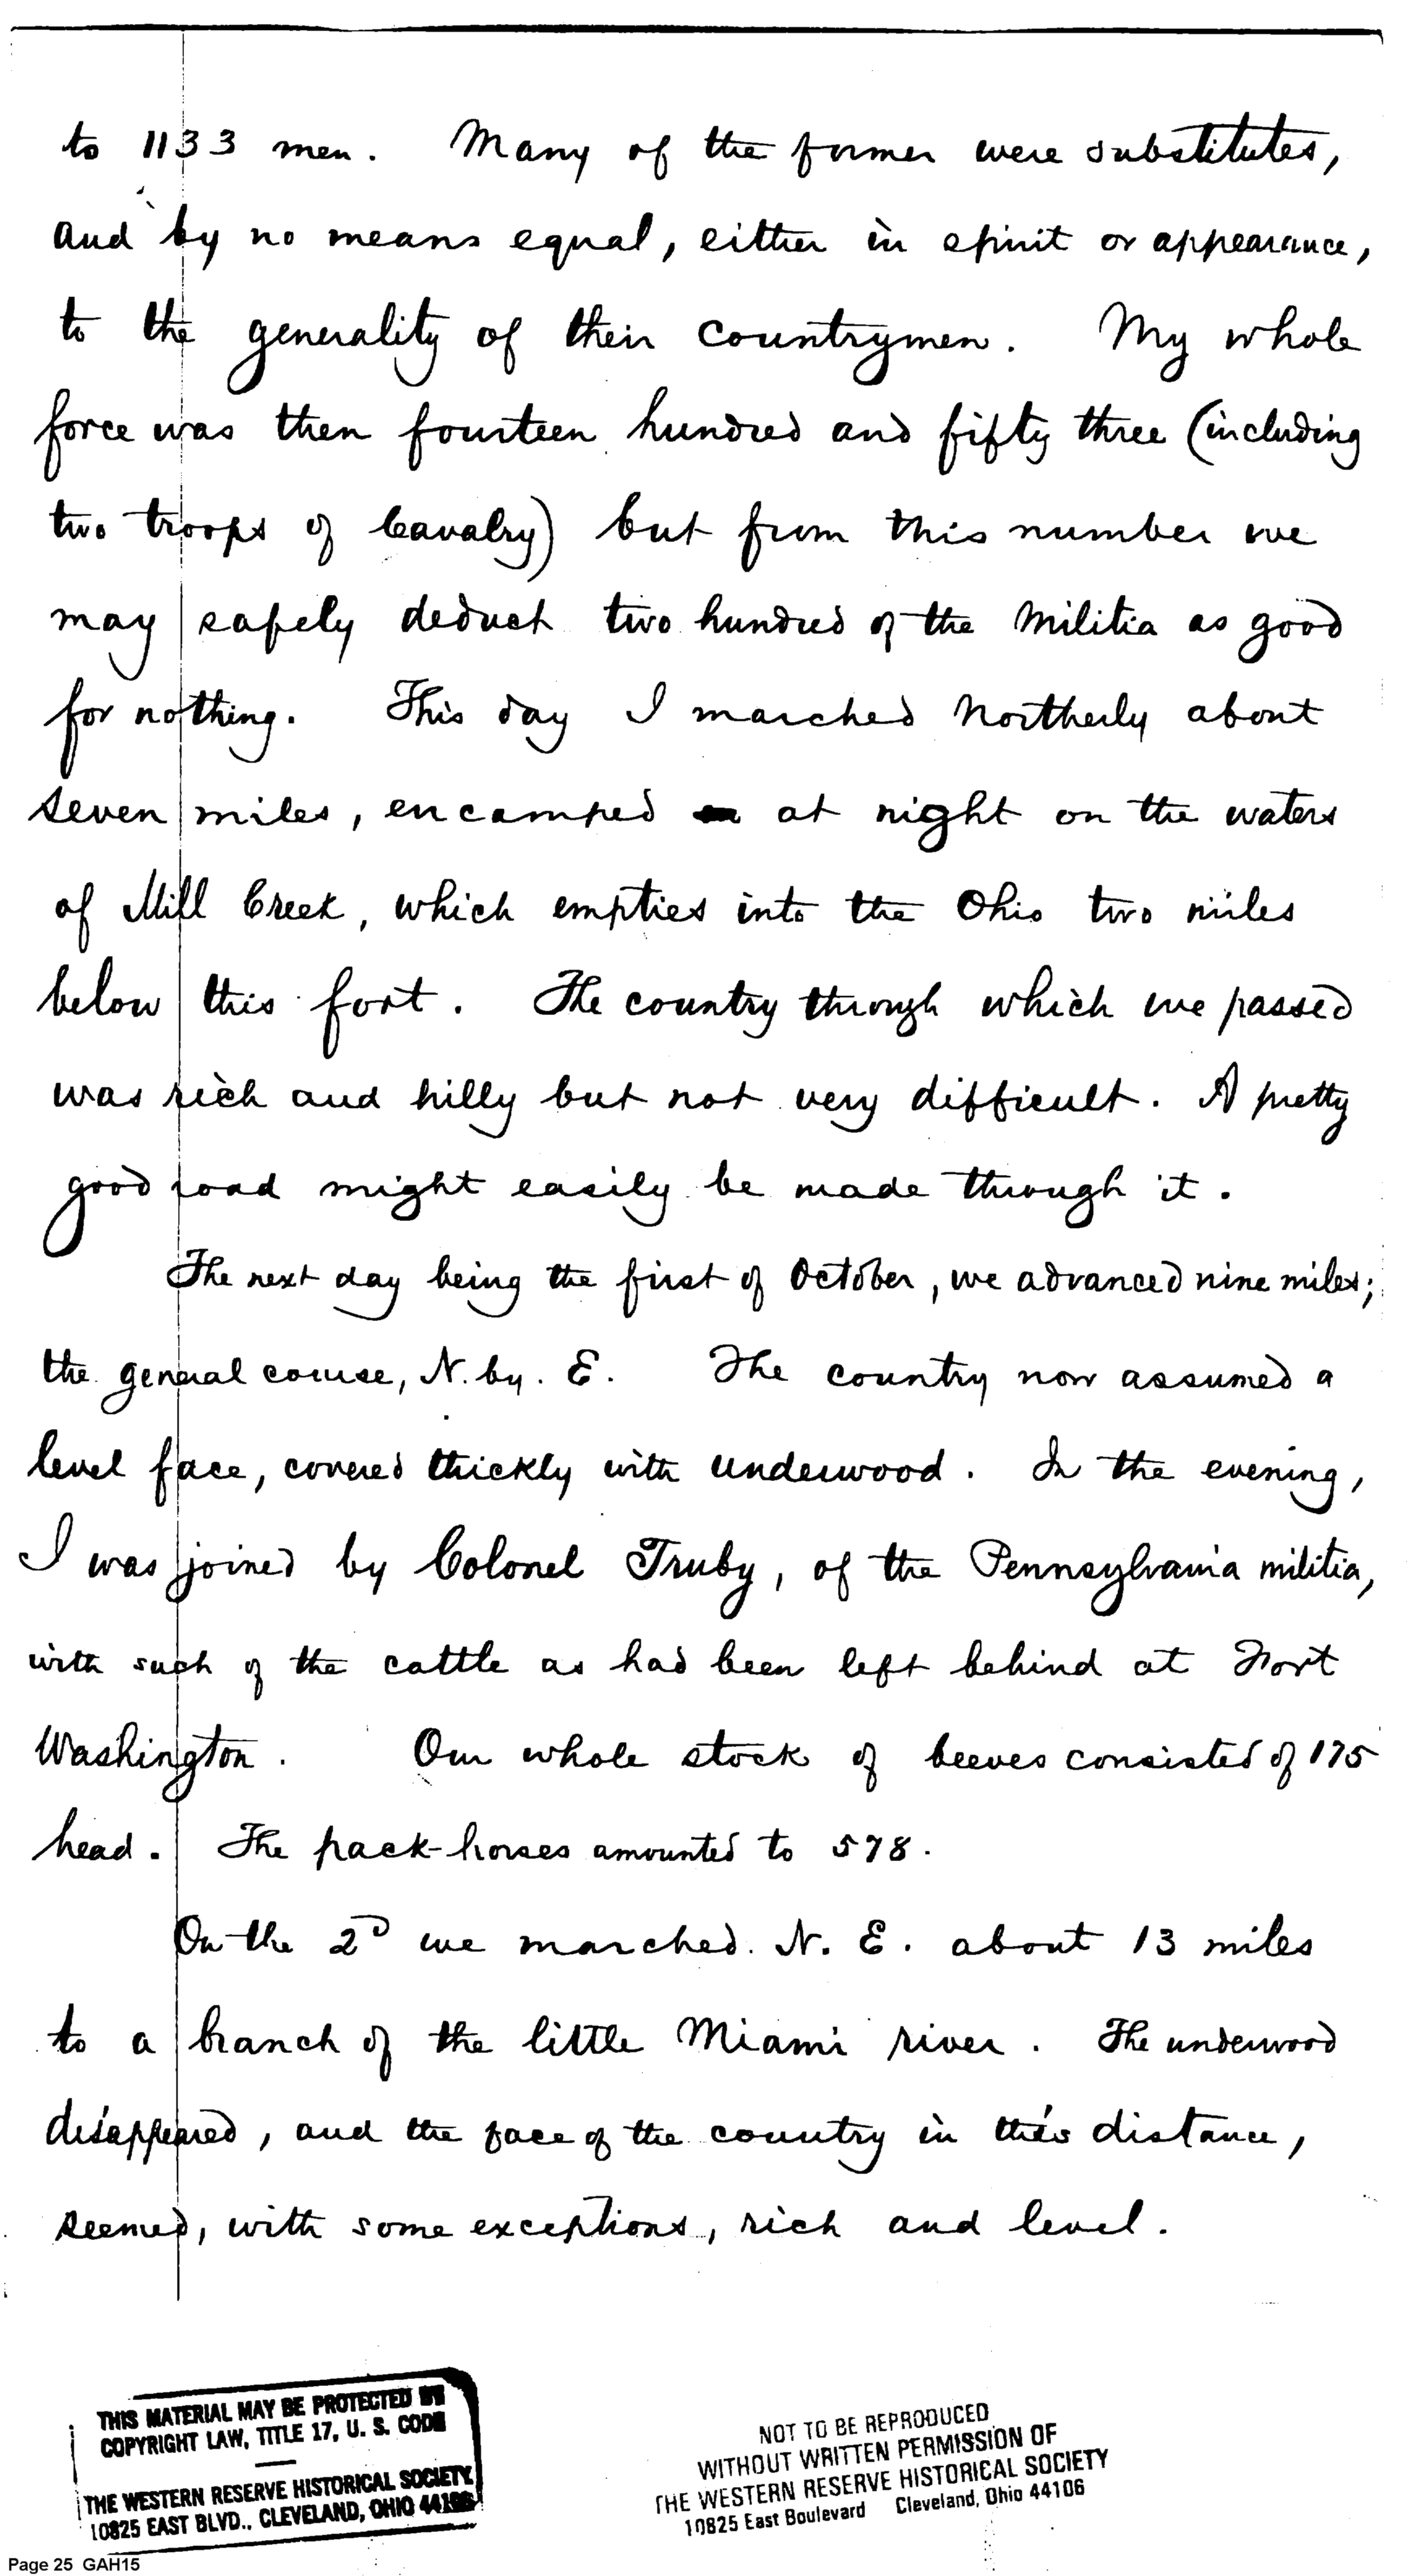 to 1133 men. Many of the former were substitutes,
and by no means equal, either in spirit or appearance,
to the generality of their countrymen. My whole
force was then fourteen hundred and fifty three (including
two troops of Cavalry) but from this number we
may safely deduct two hundred of the Militia as good
for nothing. This day I marched Northerly about
seven miles, encamped at night on the waters
of Mill Creek, which empties into the Ohio two miles
below this fort. The country through which we passed
was rich and hilly but not very difficult. A pretty
good road might easily be made through it.
The next day being the first of October, we advanced nine miles;
the general course, N. by. E. The country now assumed a
level face, covered thickly with underwood. In the evening,
I was joined by Colonel Truby, of the Pennsylvania militia,
with such of the cattle as had been left behind at Fort
Washington. Our whole stock of beeves consisted of 175
head. The pack-horses amounted to 578.
On the 2d we marched. N. E. about 13 miles
to a branch of the little Miami river. The underwood
disappeared, and the face of the country in this distance,
seemed, with some exceptions, rich and level.
THIS MATERIAL MAY BE PROTECTED BY
COPYRIGHT LAW, TITLE 17, U. S. CODE
THE WESTERN RESERVE HISTORICAL SOCIETY
10825 EAST BLVD., CLEVELAND, OHIO 44106
NOT TO BE REPRODUCED
WITHOUT WRITTEN PERMISSION OF
THE WESTERN RESERVE HISTORICAL SOCIETY
10825 East Boulevard Cleveland, Ohio 44106
Page 25 GAH15